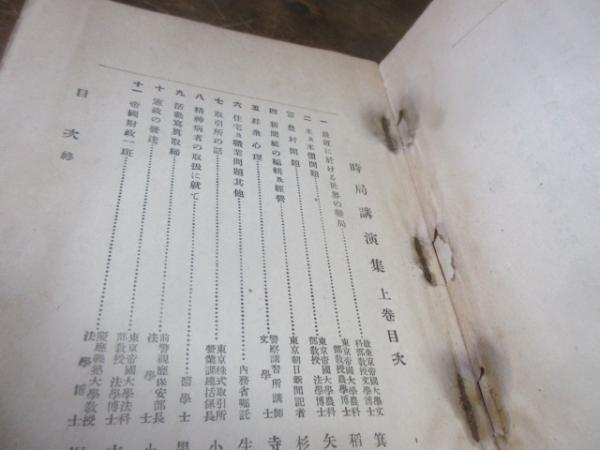 時局講演集 上巻目次
一 最近に於ける世界の變局 故東京帝國大學文科部教授文學博士 箕
二 米及米價問題 東京帝國大學農科部教授農學博士 稻
三 農村問題 東京帝國大學農科部教授 法學博士 矢
四 新聞紙の編輯及經營 東京朝日新聞記者 杉
五 群衆心理 警察講習所講師文學士 寺
六 住宅及職業問題其他 内務省囑託 生
七 取引所の話 東京株式取引所營業課總括係長 小
八 精神病者の取扱に就て 醫學士
九 活動寫眞取締 前警視廳保安部長法學士 小
十 憲政の發達 東京帝國大學法科部教授 法學博士
十一 帝國財政一班 慶應義塾大學教授法學博士 堀
目次終